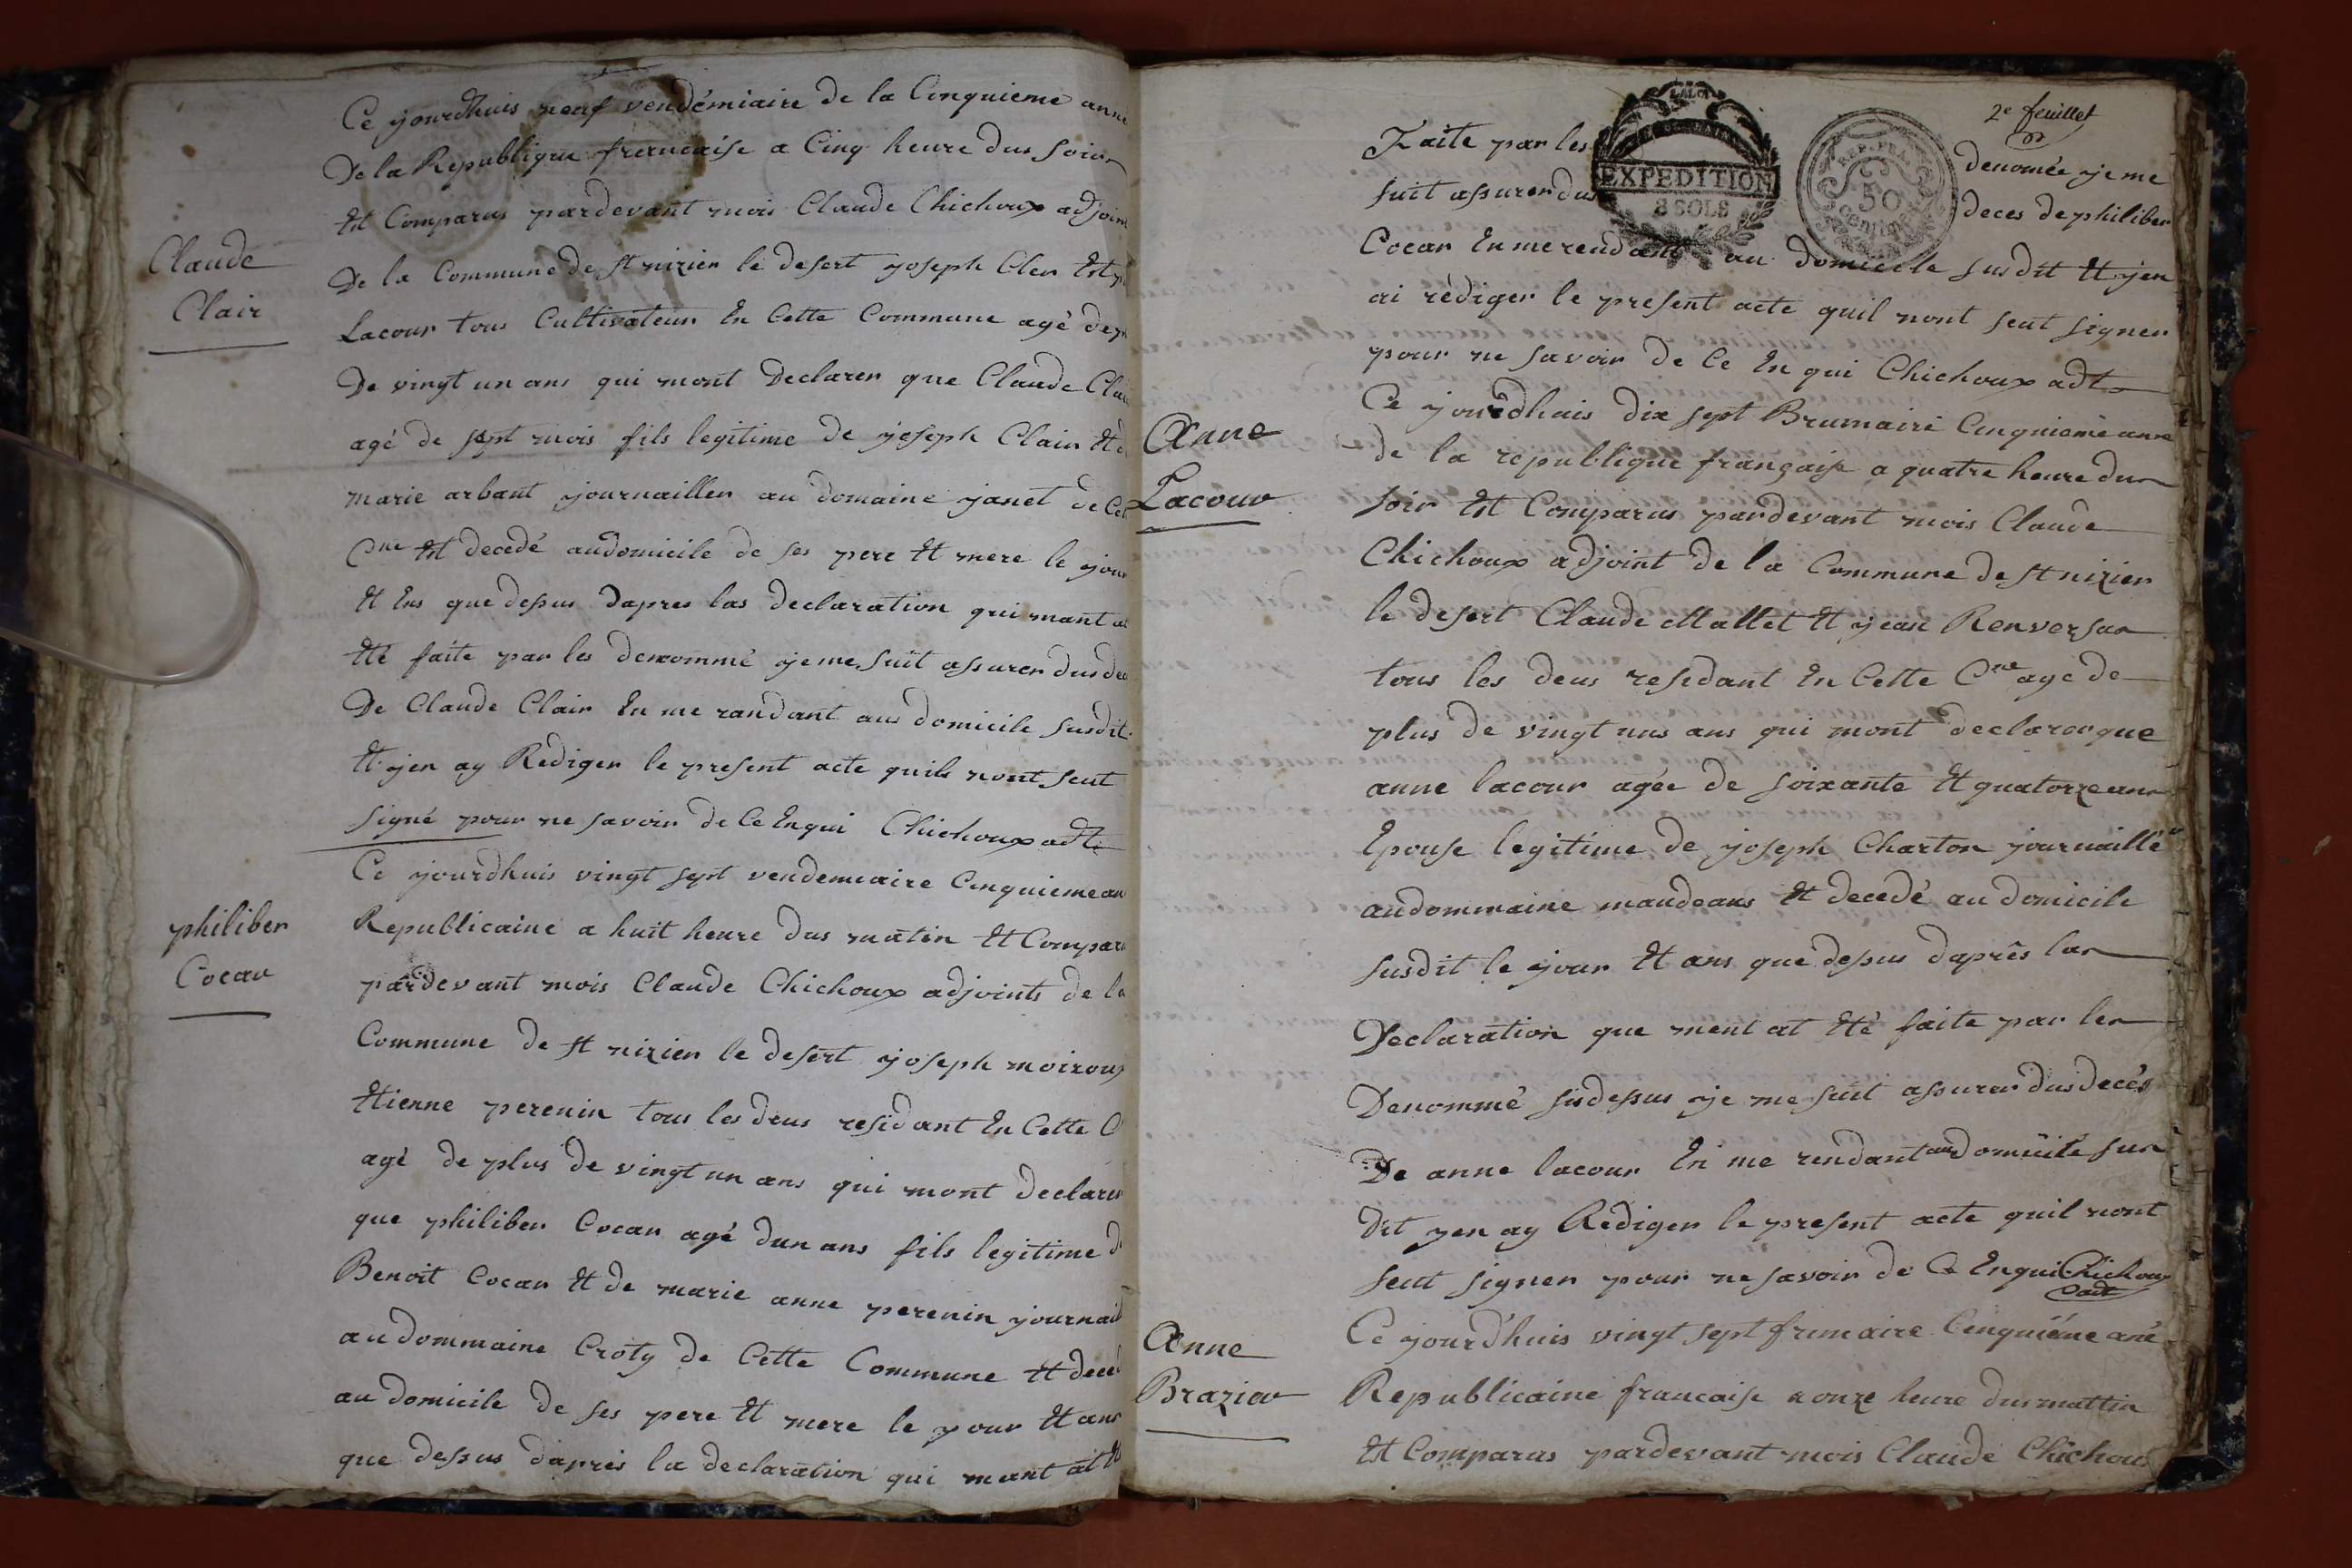 Claude
Clair
Ce jourdhuis neuf vendémiaire de la Cinquieme anné
De la Republique francaise a Cinq heure dus soir
Et Comparus pardevant mois Claude Chichoux adjoint
De la Commune de st nizier le desert joseph Cler Et
Lacour tous Cultivateur En Cette Commune agé de
De vingt un ans qui mont Declarer que Claude Clai
agé de sept mois fils legitime de joseph Clair Et d
marie arbant journaillier au domaine janet de Cet
Cne Est decedé audomicile de ses pere Et mere le jour
Et Ens que dessus Dapres las declaration qui mant a
Eté faite par les denommé je me suit assurer dus de
De Claude Clair En me randant aus domicile susdit
Et jen ay Rediger le present acte quils nont seut
signé pour ne savoir de Ce Enqui Chichoux adt
philiber
Cocar
Ce jourdhuis vingt sept vendemiaire Cinquieme an
Republicaine a huit heure dus matin Et Compar
pardevant mois Claude Chichoux adjoints de la
Commune de st nizier le desert joseph moiroux
Etienne perenin tous les deus residant En Cette C
agé de plus de vingt un ans qui mont declarer
que philiber Cocar agé dun ans fils legitime d
Benoit Cocar Et de marie anne perenin journail
au dommaine Croty de Cette Commune Et deced
au domicile de ses pere Et mere le jour Et ans
que dessus dapres la declaration qui mant at Et
2e feuillet
LA LOI
EXPEDITION
8 SOLS
REP. FRA.
50
centimes
Faite par les denomée je me
suit assurer dus deces de philiber
Cocar En me rendant au domicile susdit Et jen
ai rédiger le present acte quil nont seut signer
pour ne savoir de Ce En qui Chichoux adt
Anne
Lacour
Ce jourdhuis dix sept Brumaire Cinquieme anne
de la republique française a quatre heure du
soir Est Comparus pardevant mois Claude
Chichoux adjoint de la Commune de st nizier
le desert Claude Mallet Et jean Renversar
tous les deus residant En Cette Cne age de
plus de vingt uns ans qui mont declarer que
anne lacour agée de soixante Et quatorze ans
Epouse legitime de joseph Charton journaillé
audommaine maudeans Et decedé au domicile
susdit le jour Et ans que dessus daprês las
Declaration que ment at Eté faite par les
Denommé sudessus je me suit assurer dus decés
De anne lacour En me rendant au domicile sus
dit jen ay Rediger le present acte quil nont
seut signer pour ne savoir de Ce Enqui Chichoux
adt
Anne
Brazier
Ce jourdhuis vingt sept frimaire Cinquiéme ané
Republicaine francaise a onze heure dus mattin
Est Comparus pardevant mois Claude Chichoux